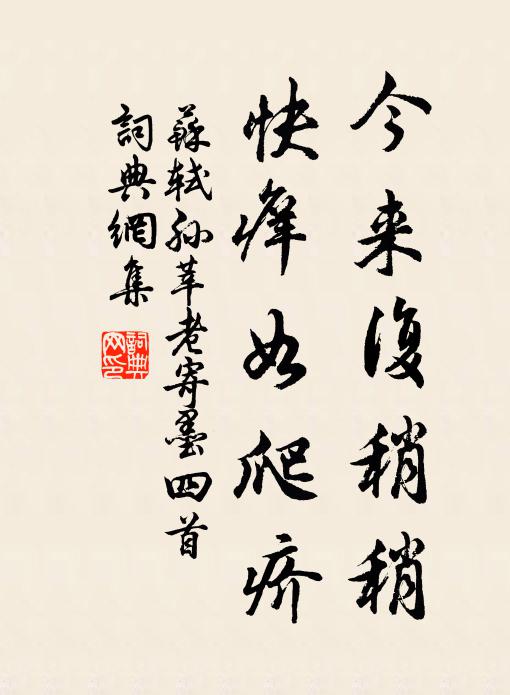 今来復稍稍
快癢如爬疥
蘇軾孫莘老寄墨四首
詞典網集
詞典
网印